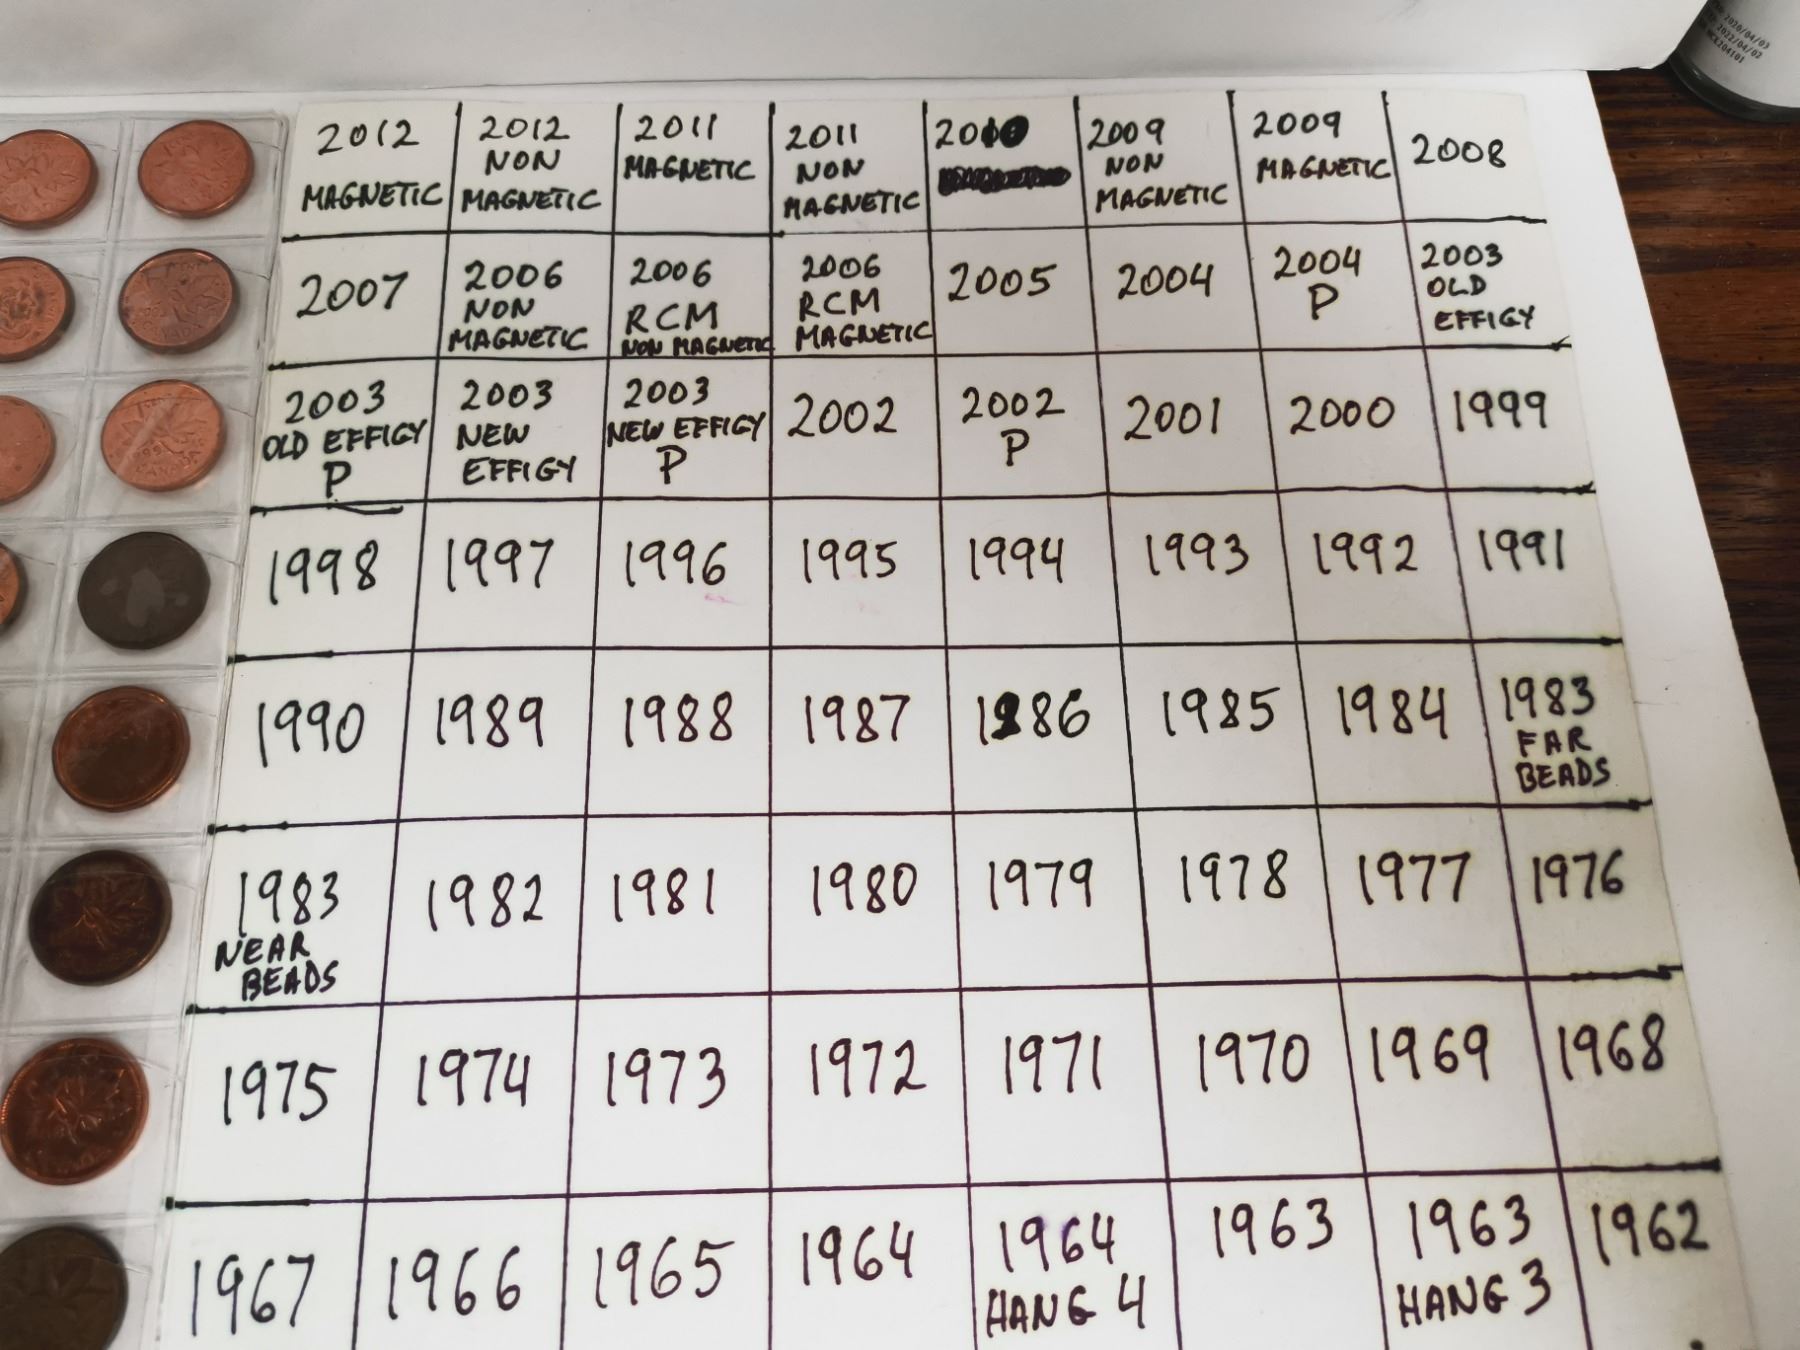 2020/04/03
2022/04/02
2012
MAGNETIC
2012
NON
MAGNETIC
2011
MAGNETIC
2011
NON
MAGNETIC
2010
2009
NON
MAGNETIC
2009
MAGNETIC
2008
2007
2006
NON
MAGNETIC
2006
RCM
NON MAGNETIC
2006
RCM
MAGNETIC
2005
2004
2004
P
2003
OLD
EFFIGY
2003
OLD EFFIGY
P
2003
NEW
EFFIGY
2003
NEW EFFIGY
P
2002
2002
P
2001
2000
1999
1998
1997
1996
1995
1994
1993
1992
1991
1990
1989
1988
1987
1986
1985
1984
1983
FAR
BEADS
1983
NEAR
BEADS
1982
1981
1980
1979
1978
1977
1976
1975
1974
1973
1972
1971
1970
1969
1968
1967
1966
1965
1964
1964
HANG 4
1963
1963
HANG 3
1962